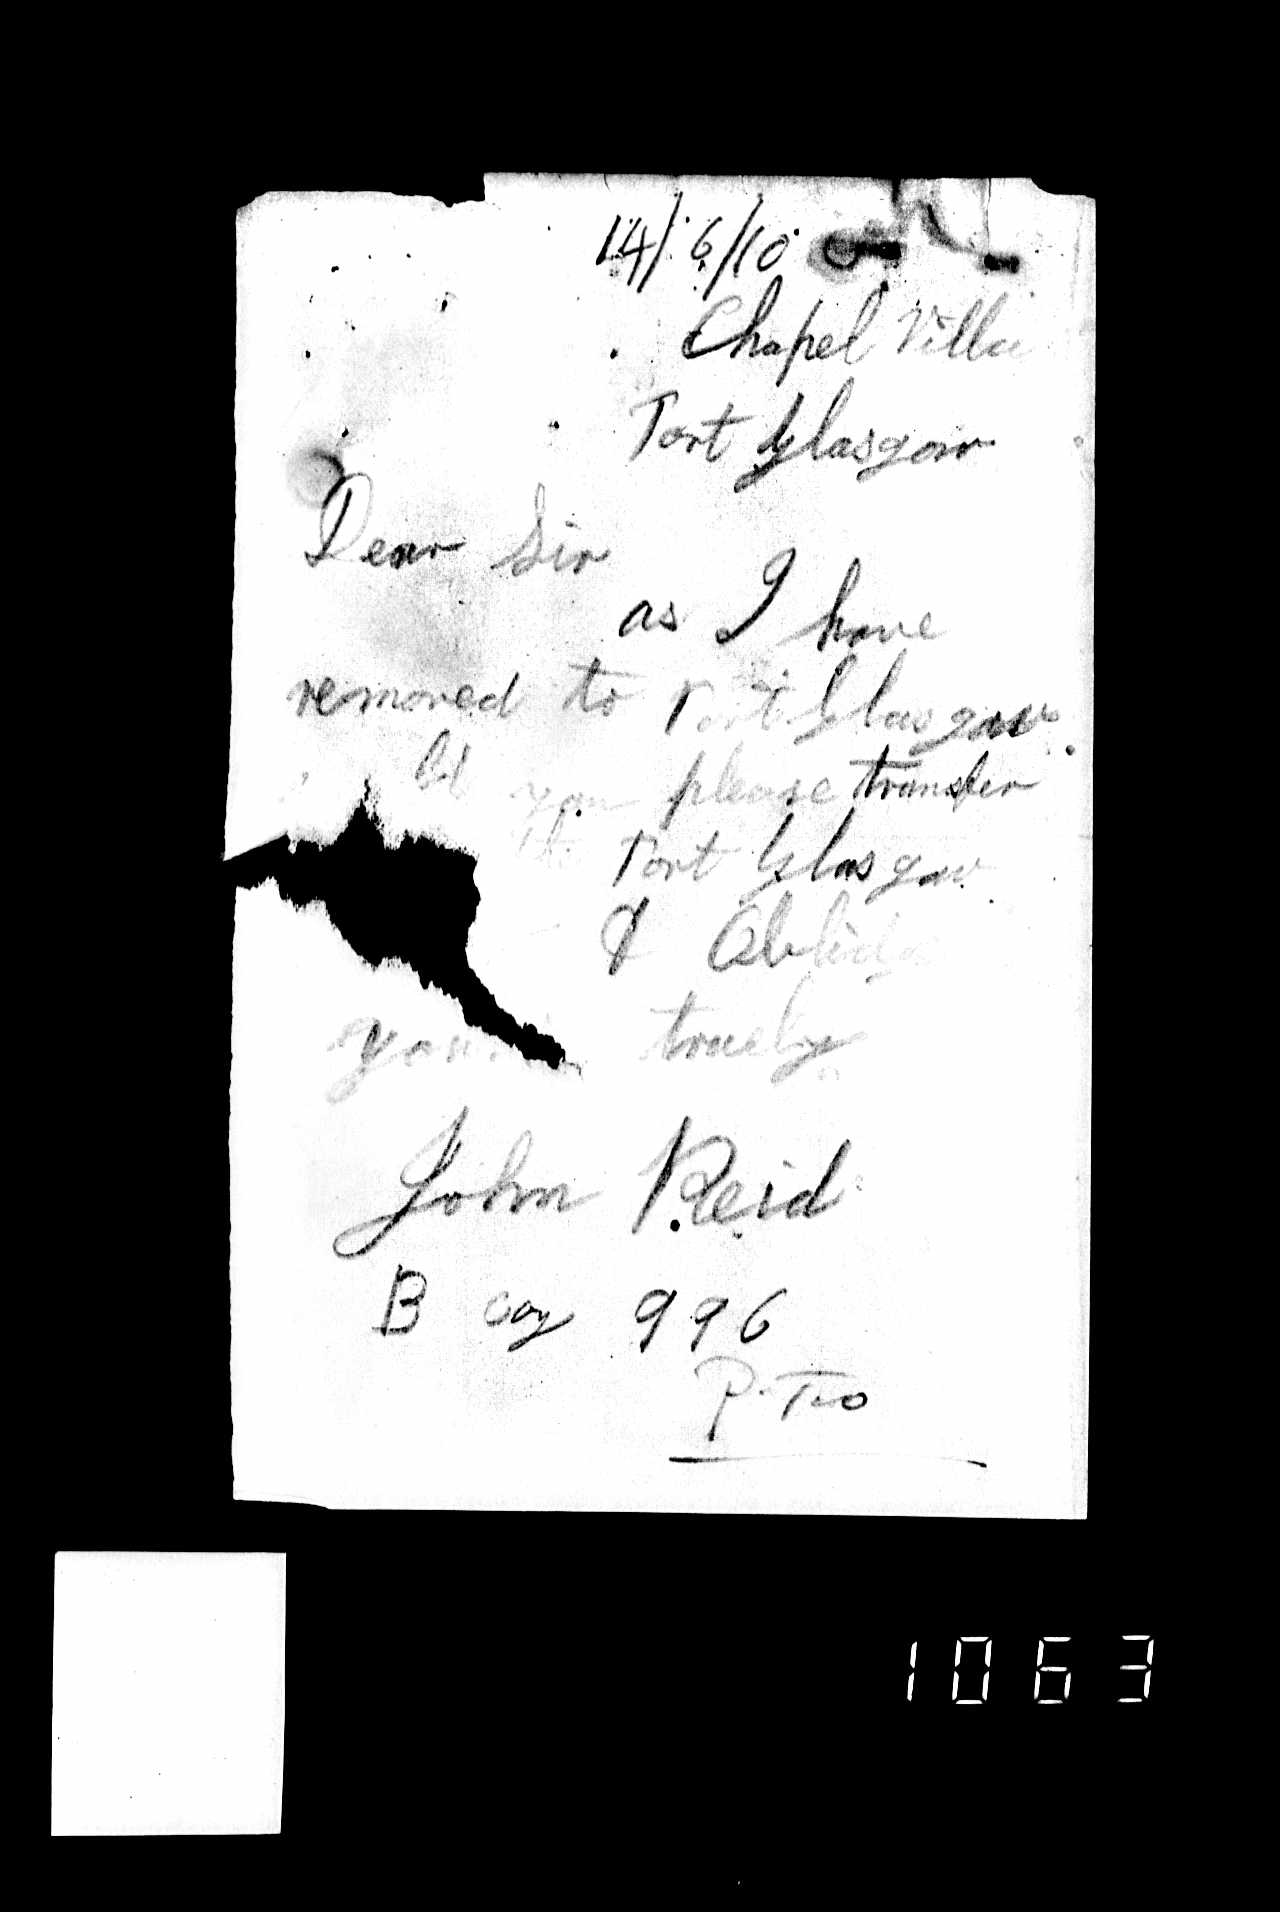 14/6/10
Chapel Villa
Port Glasgow
Dear Sir
as I have
removed to Port Glasgow
you please transfer
to Port Glasgow
& Oblidge
yours truely
John Reid
B coy 996
P.T.O
1063